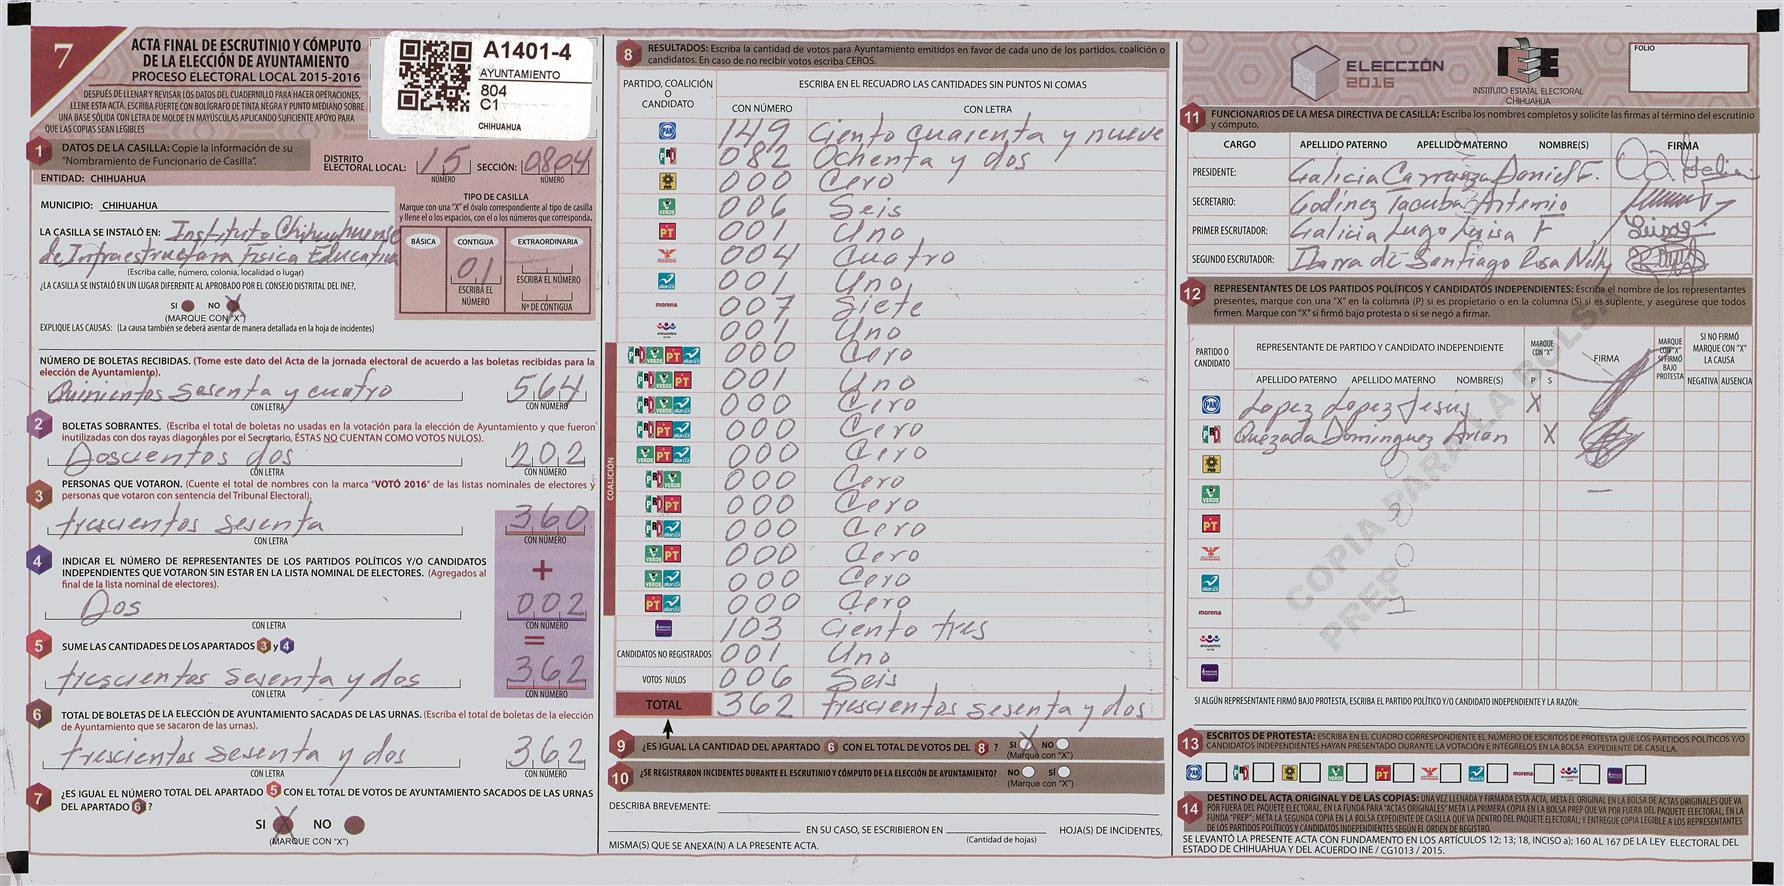 7
ACTA FINAL DE ESCRUTINIO Y CÓMPUTO
DE LA ELECCIÓN DE AYUNTAMIENTO
PROCESO ELECTORAL LOCAL 2015-2016
DESPUÉS DE LLENAR Y REVISAR LOS DATOS DEL CUADERNILLO PARA HACER OPERACIONES,
LLENE ESTA ACTA. ESCRIBA FUERTE CON BOLÍGRAFO DE TINTA NEGRA Y PUNTO MEDIANO SOBRE
UNA BASE SÓLIDA CON LETRA DE MOLDE EN MAYÚSCULAS APLICANDO SUFICIENTE APOYO PARA
QUE LAS COPIAS SEAN LEGIBLES
A1401-4
AYUNTAMIENTO
804
C1
CHIHUAHUA
1 DATOS DE LA CASILLA: Copie la información de su
"Nombramiento de Funcionario de Casilla".
DISTRITO ELECTORAL LOCAL: 15 NÚMERO SECCIÓN: 0804 NÚMERO
ENTIDAD: CHIHUAHUA
MUNICIPIO: CHIHUAHUA
LA CASILLA SE INSTALÓ EN: Instituto Chihuahuense
de Infraestructura Fisica Educativa
(Escriba calle, número, colonia, localidad o lugar)
¿LA CASILLA SE INSTALÓ EN UN LUGAR DIFERENTE AL APROBADO POR EL CONSEJO DISTRITAL DEL INE?,
SI NO X
(MARQUE CON "X")
EXPLIQUE LAS CAUSAS: (La causa también se deberá asentar de manera detallada en la hoja de incidentes)
TIPO DE CASILLA
Marque con una "X" el óvalo correspondiente al tipo de casilla
y llene el o los espacios, con el o los números que corresponda.
BÁSICA CONTIGUA EXTRAORDINARIA
01
ESCRIBA EL NÚMERO
ESCRIBA EL NÚMERO
Nº DE CONTIGUA
NÚMERO DE BOLETAS RECIBIDAS. (Tome este dato del Acta de la jornada electoral de acuerdo a las boletas recibidas para la
elección de Ayuntamiento).
Quinientos sesenta y cuatro 564
CON LETRA CON NÚMERO
2 BOLETAS SOBRANTES. (Escriba el total de boletas no usadas en la votación para la elección de Ayuntamiento y que fueron
inutilizadas con dos rayas diagonales por el Secretario, ÉSTAS NO CUENTAN COMO VOTOS NULOS).
Doscientos dos 202
CON LETRA CON NÚMERO
3 PERSONAS QUE VOTARON. (Cuente el total de nombres con la marca "VOTÓ 2016" de las listas nominales de electores y
personas que votaron con sentencia del Tribunal Electoral).
trescientos sesenta 360
CON LETRA CON NÚMERO
4 INDICAR EL NÚMERO DE REPRESENTANTES DE LOS PARTIDOS POLÍTICOS Y/O CANDIDATOS
INDEPENDIENTES QUE VOTARON SIN ESTAR EN LA LISTA NOMINAL DE ELECTORES. (Agregados al
final de la lista nominal de electores).
+
Dos 002
CON LETRA CON NÚMERO
5 SUME LAS CANTIDADES DE LOS APARTADOS 3 y 4
=
trescientos sesenta y dos 362
CON LETRA CON NÚMERO
6 TOTAL DE BOLETAS DE LA ELECCIÓN DE AYUNTAMIENTO SACADAS DE LAS URNAS. (Escriba el total de boletas de la elección
de Ayuntamiento que se sacaron de las urnas).
trescientos sesenta y dos 362
CON LETRA CON NÚMERO
7 ¿ES IGUAL EL NÚMERO TOTAL DEL APARTADO 5 CON EL TOTAL DE VOTOS DE AYUNTAMIENTO SACADOS DE LAS URNAS
DEL APARTADO 6 ?
SI X NO
(MARQUE CON "X")
8 RESULTADOS: Escriba la cantidad de votos para Ayuntamiento emitidos en favor de cada uno de los partidos, coalición o
candidatos. En caso de no recibir votos escriba CEROS.
PARTIDO, COALICIÓN O CANDIDATO
ESCRIBA EN EL RECUADRO LAS CANTIDADES SIN PUNTOS NI COMAS
CON NÚMERO CON LETRA
PAN 149 Ciento cuarenta y nueve
PRI 082 Ochenta y dos
PRD 000 Cero
VERDE 006 Seis
PT 001 Uno
004 Cuatro
alianza 001 Uno
morena 007 Siete
encuentro social 001 Uno
COALICIÓN
PRI VERDE PT alianza 000 Cero
PRI VERDE PT 001 Uno
PRI VERDE alianza 000 Cero
PRI PT alianza 000 Cero
VERDE PT alianza 000 Cero
PRI VERDE 000 Cero
PRI PT 000 Cero
PRI alianza 000 Cero
VERDE PT 000 Cero
VERDE alianza 000 Cero
PT alianza 000 Cero
103 Ciento tres
CANDIDATOS NO REGISTRADOS 001 Uno
VOTOS NULOS 006 Seis
TOTAL 362 trescientos sesenta y dos
9 ¿ES IGUAL LA CANTIDAD DEL APARTADO 6 CON EL TOTAL DE VOTOS DEL 8 ? SI X NO
(Marque con "X")
10 ¿SE REGISTRARON INCIDENTES DURANTE EL ESCRUTINIO Y CÓMPUTO DE LA ELECCIÓN DE AYUNTAMIENTO? NO SÍ
(Marque con "X")
DESCRIBA BREVEMENTE:
EN SU CASO, SE ESCRIBIERON EN (Cantidad de hojas) HOJA(S) DE INCIDENTES,
MISMA(S) QUE SE ANEXA(N) A LA PRESENTE ACTA.
ELECCIÓN
2016
IEE
INSTITUTO ESTATAL ELECTORAL
CHIHUAHUA
FOLIO
11 FUNCIONARIOS DE LA MESA DIRECTIVA DE CASILLA: Escriba los nombres completos y solicite las firmas al término del escrutinio
y cómputo.
CARGO APELLIDO PATERNO APELLIDO MATERNO NOMBRE(S) FIRMA
PRESIDENTE: Galicia Carranza Daniel F.
SECRETARIO: Godinez Tacuba Artemio
PRIMER ESCRUTADOR: Galicia Lugo Luisa F
SEGUNDO ESCRUTADOR: Ibarra de Santiago Rosa Nelly
12 REPRESENTANTES DE LOS PARTIDOS POLÍTICOS Y CANDIDATOS INDEPENDIENTES: Escriba el nombre de los representantes
presentes, marque con una "X" en la columna (P) si es propietario o en la columna (S) si es suplente, y asegúrese que todos
firmen. Marque con "X" si firmó bajo protesta o si se negó a firmar.
PARTIDO O CANDIDATO
REPRESENTANTE DE PARTIDO Y CANDIDATO INDEPENDIENTE
MARQUE CON "X"
FIRMA
MARQUE CON "X" SI FIRMÓ BAJO PROTESTA
SI NO FIRMÓ MARQUE CON "X" LA CAUSA
APELLIDO PATERNO APELLIDO MATERNO NOMBRE(S) P S NEGATIVA AUSENCIA
PAN Lopez Lopez Jesus X
PRI Quezada Dominguez Arian X
PRD
VERDE
PT
alianza
morena
encuentro social
COPIA PARA LA BOLSA
PREP
SI ALGÚN REPRESENTANTE FIRMÓ BAJO PROTESTA, ESCRIBA EL PARTIDO POLÍTICO Y/O CANDIDATO INDEPENDIENTE Y LA RAZÓN:
13 ESCRITOS DE PROTESTA: ESCRIBA EN EL CUADRO CORRESPONDIENTE EL NÚMERO DE ESCRITOS DE PROTESTA QUE LOS PARTIDOS POLÍTICOS Y/O
CANDIDATOS INDEPENDIENTES HAYAN PRESENTADO DURANTE LA VOTACIÓN E INTÉGRELOS EN LA BOLSA EXPEDIENTE DE CASILLA.
PAN PRI PRD VERDE PT alianza morena
14 DESTINO DEL ACTA ORIGINAL Y DE LAS COPIAS: UNA VEZ LLENADA Y FIRMADA ESTA ACTA, META EL ORIGINAL EN LA BOLSA DE ACTAS ORIGINALES QUE VA
POR FUERA DEL PAQUETE ELECTORAL, EN LA FUNDA PARA "ACTAS ORIGINALES" META LA PRIMERA COPIA EN LA BOLSA PREP QUE VA POR FUERA DEL PAQUETE ELECTORAL, EN LA
FUNDA "PREP"; META LA SEGUNDA COPIA EN LA BOLSA EXPEDIENTE DE CASILLA QUE VA DENTRO DEL PAQUETE ELECTORAL; Y ENTREGUE COPIA LEGIBLE A LOS REPRESENTANTES
DE LOS PARTIDOS POLÍTICOS Y CANDIDATOS INDEPENDIENTES SEGÚN EL ORDEN DE REGISTRO.
SE LEVANTÓ LA PRESENTE ACTA CON FUNDAMENTO EN LOS ARTÍCULOS 12; 13; 18, INCISO a); 160 AL 167 DE LA LEY ELECTORAL DEL
ESTADO DE CHIHUAHUA Y DEL ACUERDO INE / CG1013 / 2015.